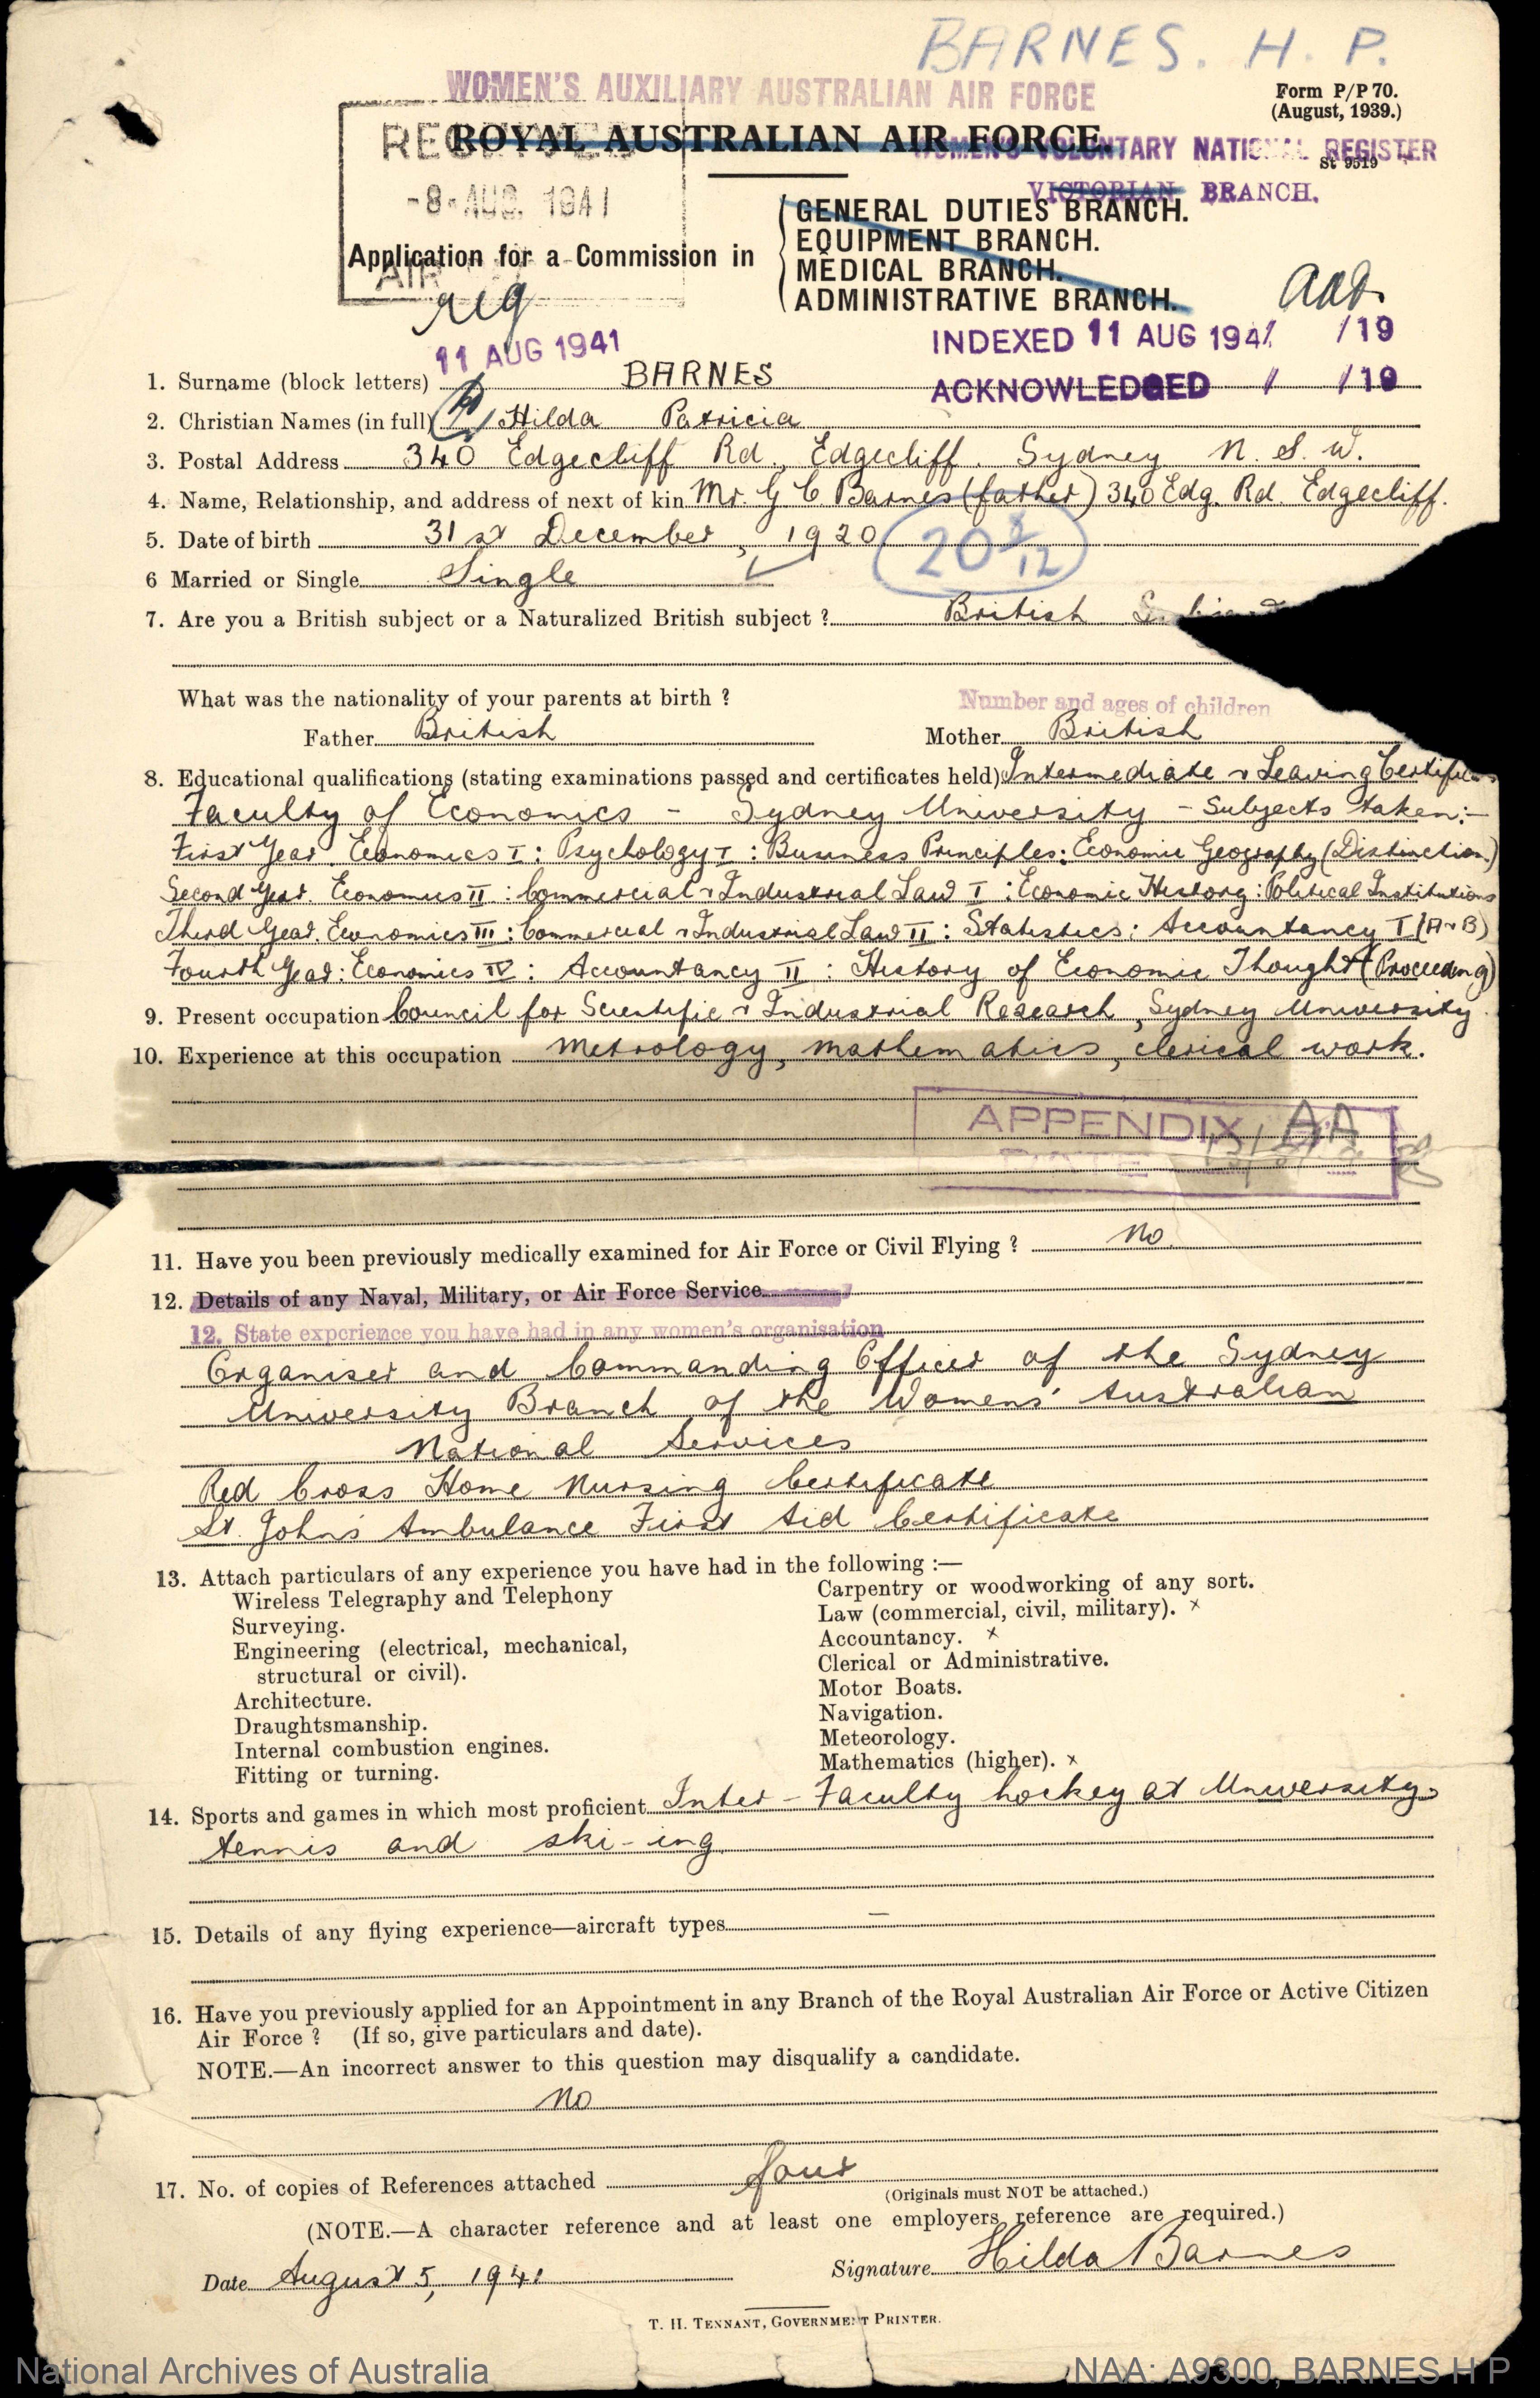 BARNES. H. P.
WOMEN'S AUXILIARY AUSTRALIAN AIR FORCE
Form P/P 70.
(August, 1939.)
RECEIVED
ROYAL AUSTRALIAN AIR FORCE.
WOMEN'S VOLUNTARY NATIONAL REGISTER
St 9519
VICTORIAN BRANCH.
-8-AUG. 1941
Application for a Commission in
GENERAL DUTIES BRANCH.
EQUIPMENT BRANCH.
MEDICAL BRANCH.
ADMINISTRATIVE BRANCH.
AIR
11 AUG 1941
INDEXED 11 AUG 1941 /19
ACKNOWLEDGED / /19
1. Surname (block letters) BARNES
2. Christian Names (in full) Hilda Patricia
3. Postal Address 340 Edgecliff Rd, Edgecliff. Sydney N. S. W.
4. Name, Relationship, and address of next of kin Mr. G C Barnes (father) 340 Edg. Rd. Edgecliff.
5. Date of birth 31st December, 1920
20 8/12
6 Married or Single Single
7. Are you a British subject or a Naturalized British subject ? British
What was the nationality of your parents at birth ?
Number and ages of children
Father British Mother British
8. Educational qualifications (stating examinations passed and certificates held) Intermediate & Leaving Certificates
Faculty of Economics - Sydney University - Subjects taken:-
First Year. Economics I : Psychology I : Business Principles: Economic Geography (Distinction)
Second Year. Economics II : Commercial & Industrial Law I : Economic History : Political Institutions
Third Year. Economics III : Commercial & Industrial Law II : Statistics : Accountancy I (A & B)
Fourth Year: Economics IV : Accountancy II : History of Economic Thought (Proceeding)
9. Present occupation Council for Scientific & Industrial Research, Sydney University.
10. Experience at this occupation Metrology, mathematics, clerical work.
APPENDIX AA
11. Have you been previously medically examined for Air Force or Civil Flying ? No.
12. Details of any Naval, Military, or Air Force Service
12. State experience you have had in any women's organisation
Organiser and Commanding Officer of the Sydney
University Branch of the Womens' Australian
National Services
Red Cross Home Nursing Certificate
St. John's Ambulance First Aid Certificate
13. Attach particulars of any experience you have had in the following :—
Wireless Telegraphy and Telephony
Surveying.
Engineering (electrical, mechanical,
structural or civil).
Architecture.
Draughtsmanship.
Internal combustion engines.
Fitting or turning.
Carpentry or woodworking of any sort.
Law (commercial, civil, military). x
Accountancy. x
Clerical or Administrative.
Motor Boats.
Navigation.
Meteorology.
Mathematics (higher). x
14. Sports and games in which most proficient Inter-Faculty hockey at University,
tennis and ski-ing.
15. Details of any flying experience—aircraft types —
16. Have you previously applied for an Appointment in any Branch of the Royal Australian Air Force or Active Citizen
Air Force ? (If so, give particulars and date).
NOTE.—An incorrect answer to this question may disqualify a candidate.
No
17. No. of copies of References attached four
(Originals must NOT be attached.)
(NOTE.—A character reference and at least one employers reference are required.)
Date August 5, 1941 Signature Hilda Barnes
T. H. TENNANT, GOVERNMENT PRINTER.
National Archives of Australia
NAA: A9300, BARNES H P